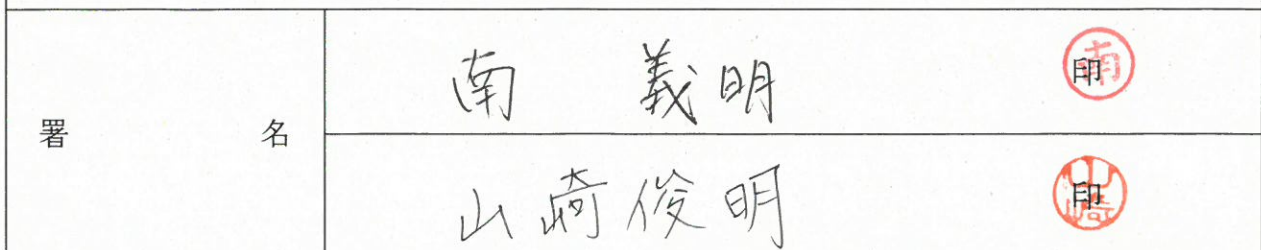 署名
南 義明 印 南
山崎俊明 印 山崎